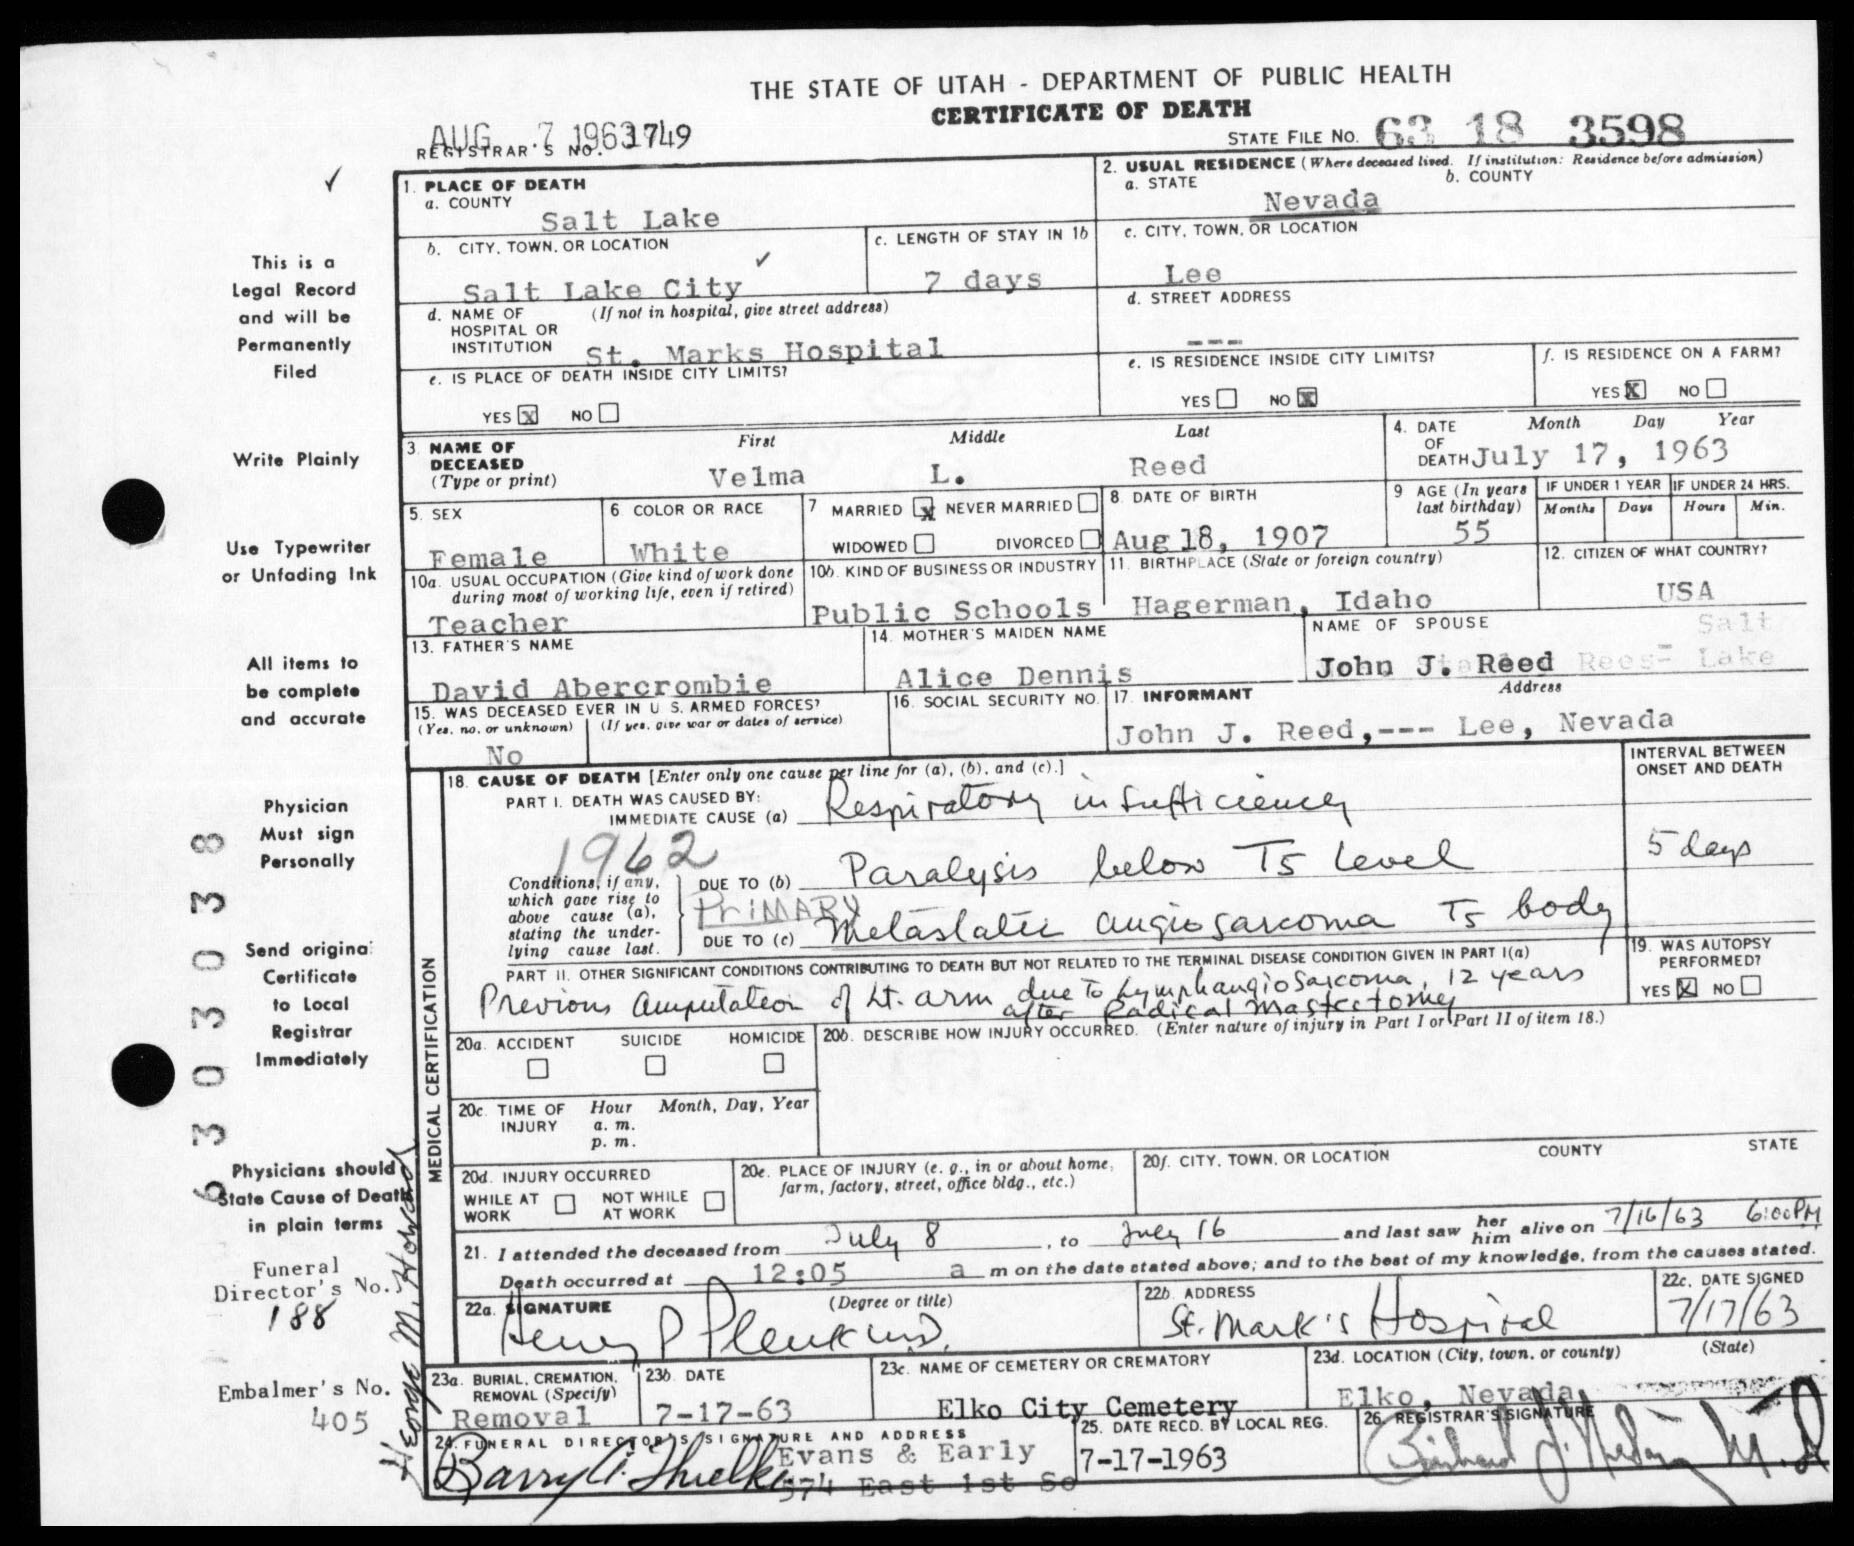 THE STATE OF UTAH - DEPARTMENT OF PUBLIC HEALTH
CERTIFICATE OF DEATH
AUG 7 1963
REGISTRAR'S NO. 1749
STATE FILE NO. 63 18 3598
1. PLACE OF DEATH
a. COUNTY
Salt Lake
2. USUAL RESIDENCE (Where deceased lived. If institution: Residence before admission)
a. STATE
b. COUNTY
Nevada
b. CITY, TOWN, OR LOCATION
Salt Lake City
c. LENGTH OF STAY IN 1b
7 days
c. CITY, TOWN, OR LOCATION
Lee
d. NAME OF HOSPITAL OR INSTITUTION
(If not in hospital, give street address)
St. Marks Hospital
d. STREET ADDRESS
---
e. IS PLACE OF DEATH INSIDE CITY LIMITS?
YES X NO
e. IS RESIDENCE INSIDE CITY LIMITS?
YES NO X
f. IS RESIDENCE ON A FARM?
YES X NO
3. NAME OF DECEASED
(Type or print)
First Middle Last
Velma L. Reed
4. DATE OF DEATH
Month Day Year
July 17, 1963
5. SEX
Female
6 COLOR OR RACE
White
7 MARRIED X NEVER MARRIED
WIDOWED DIVORCED
8. DATE OF BIRTH
Aug 18, 1907
9 AGE (In years last birthday)
55
IF UNDER 1 YEAR
Months Days
IF UNDER 24 HRS.
Hours Min.
10a. USUAL OCCUPATION (Give kind of work done during most of working life, even if retired)
Teacher
10b. KIND OF BUSINESS OR INDUSTRY
Public Schools
11. BIRTHPLACE (State or foreign country)
Hagerman, Idaho
12. CITIZEN OF WHAT COUNTRY?
USA
13. FATHER'S NAME
David Abercrombie
14. MOTHER'S MAIDEN NAME
Alice Dennis
NAME OF SPOUSE
Salt
John J. Reed
Lake
15. WAS DECEASED EVER IN U S. ARMED FORCES?
(Yes, no, or unknown) (If yes, give war or dates of service)
No
16. SOCIAL SECURITY NO.
17. INFORMANT
Address
John J. Reed,--- Lee, Nevada
18. CAUSE OF DEATH [Enter only one cause per line for (a), (b), and (c).]
INTERVAL BETWEEN ONSET AND DEATH
PART I. DEATH WAS CAUSED BY:
IMMEDIATE CAUSE (a) Respiratory insufficiency
1962
Conditions, if any, which gave rise to above cause (a), stating the underlying cause last.
DUE TO (b) Paralysis below T5 level
5 days
PRIMARY
DUE TO (c) Metastatic angiosarcoma T5 body
PART II. OTHER SIGNIFICANT CONDITIONS CONTRIBUTING TO DEATH BUT NOT RELATED TO THE TERMINAL DISEASE CONDITION GIVEN IN PART I(a)
Previous amputation of Lt. arm due to Lymphangiosarcoma, 12 years
after Radical Mastectomy
19. WAS AUTOPSY PERFORMED?
YES X NO
MEDICAL CERTIFICATION
20a. ACCIDENT SUICIDE HOMICIDE
20b. DESCRIBE HOW INJURY OCCURRED. (Enter nature of injury in Part I or Part II of item 18.)
20c. TIME OF INJURY
Hour Month, Day, Year
a. m.
p. m.
20d. INJURY OCCURRED
WHILE AT WORK NOT WHILE AT WORK
20e. PLACE OF INJURY (e. g., in or about home, farm, factory, street, office bldg., etc.)
20f. CITY, TOWN, OR LOCATION COUNTY STATE
21. I attended the deceased from July 8, to July 16 and last saw her him alive on 7/16/63 6:00PM
Death occurred at 12:05 a m on the date stated above; and to the best of my knowledge, from the causes stated.
22a. SIGNATURE (Degree or title)
Henry P Plenk M.D.
22b. ADDRESS
St. Mark's Hospital
22c. DATE SIGNED
7/17/63
23a. BURIAL, CREMATION, REMOVAL (Specify)
Removal
23b. DATE
7-17-63
23c. NAME OF CEMETERY OR CREMATORY
Elko City Cemetery
23d. LOCATION (City, town, or county) (State)
Elko, Nevada
24. FUNERAL DIRECTOR'S SIGNATURE AND ADDRESS
Barry A. Thielke
Evans & Early
574 East 1st So
25. DATE RECD. BY LOCAL REG.
7-17-1963
26. REGISTRAR'S SIGNATURE
M.D.
This is a
Legal Record
and will be
Permanently
Filed
Write Plainly
Use Typewriter
or Unfading Ink
All items to
be complete
and accurate
Physician
Must sign
Personally
Send original
Certificate
to Local
Registrar
Immediately
Physicians should
State Cause of Death
in plain terms
Funeral
Director's No.
188
Embalmer's No.
405
George M. Howard
6303038